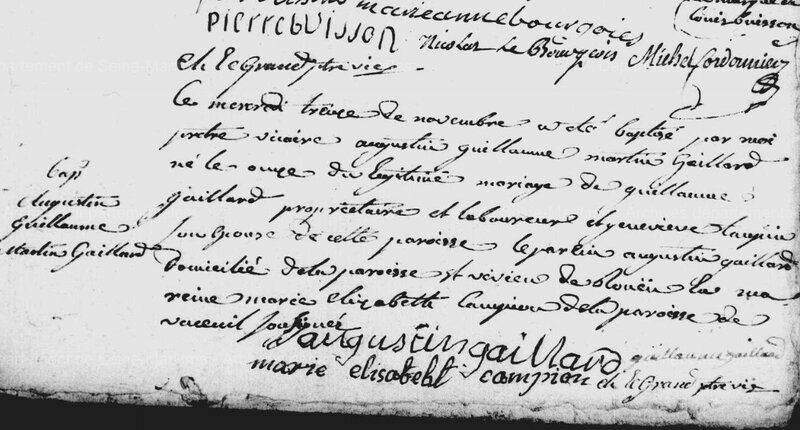 marieannebourgois
Louis buisson
pierrebuisson Nicolas le Bourgois Michel Cordonnier
ch LeGrand ptre vic
le mercredi treize de novembre a eté baptisé par moi
pretre vicaire augustin guillaume martin Gaillard
né le onze du legitime mariage de guillaume
Gaillard propriétaire et laboureur et genevieve
son epouse de cette paroisse le parein augustin gaillard
domicilié de la paroisse St vivien de Rouën la ma
reine marie elizabeth campion de la paroisse de
soussignés
Bap
Augustin
Guillaume
Martin Gaillard
augustin gaillard guillaume gaillard
marie elisabeht campion ch LeGrand ptre vic